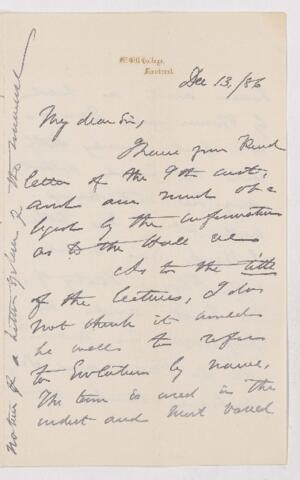 McGill College,
Montreal.
Dec 13, /86
My dear Sir,
I have your kind
letter of the 9th inst,
and am much ob-
liged by the information
as to the Hall &c
As to the title
of the lectures, I do
not think it would
be well to refer
to Evolution by name.
The term is used in the
and most